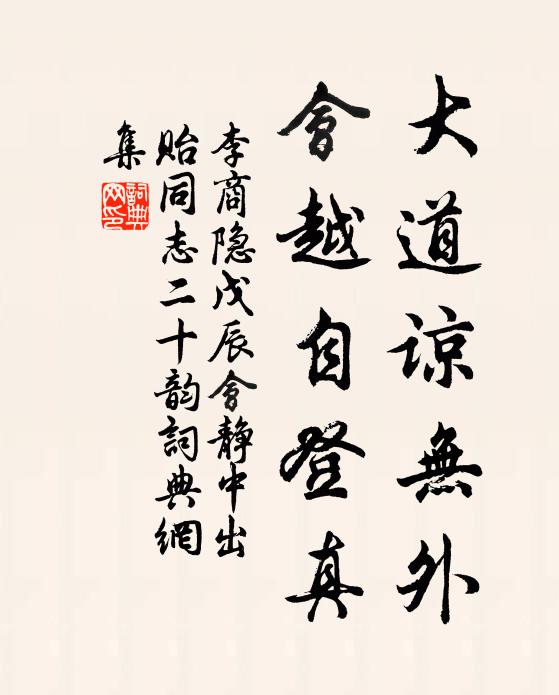 大道諒無外
會越自登真
李商隐戊辰會静中出
貽同志二十韵詞典網
集
詞典网印